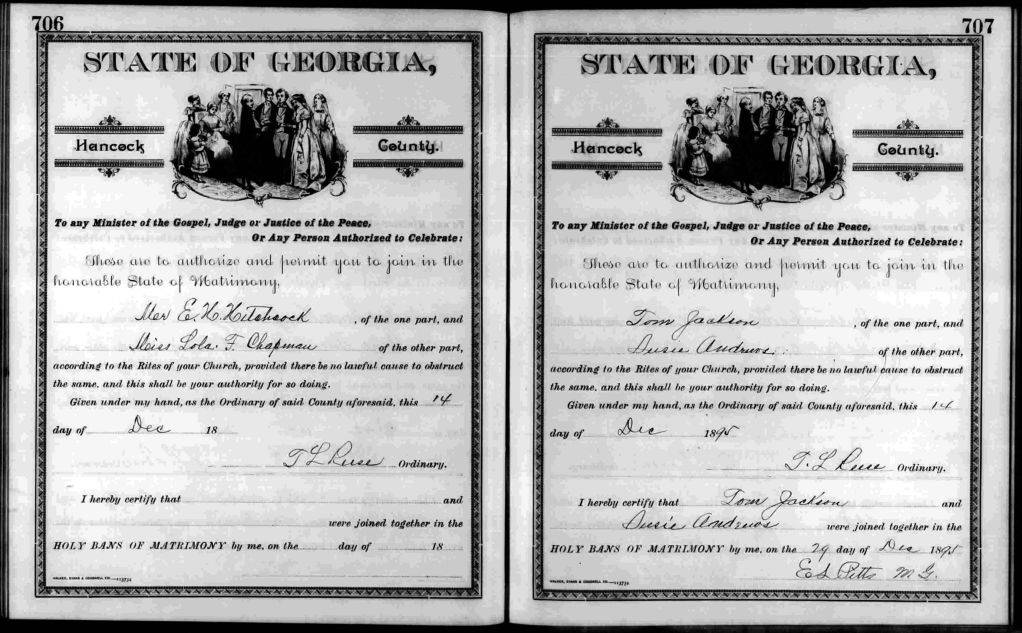 706
STATE OF GEORGIA,
Hancock County.
To any Minister of the Gospel, Judge or Justice of the Peace,
Or Any Person Authorized to Celebrate:
These are to authorize and permit you to join in the
honorable State of Matrimony,
Mr E. H. Hitchcock , of the one part, and
Miss Lola. F. Chapman of the other part,
according to the Rites of your Church, provided there be no lawful cause to obstruct
the same, and this shall be your authority for so doing.
Given under my hand, as the Ordinary of said County aforesaid, this 14
day of Dec 18
T L Reese Ordinary.
I hereby certify that and
were joined together in the
HOLY BANS OF MATRIMONY by me, on the day of 18
707
STATE OF GEORGIA,
Hancock County.
To any Minister of the Gospel, Judge or Justice of the Peace,
Or Any Person Authorized to Celebrate:
These are to authorize and permit you to join in the
honorable State of Matrimony,
Tom Jackson , of the one part, and
Susie Andrews. of the other part,
according to the Rites of your Church, provided there be no lawful cause to obstruct
the same, and this shall be your authority for so doing.
Given under my hand, as the Ordinary of said County aforesaid, this 14
day of Dec 1895
T. L Reese Ordinary.
I hereby certify that Tom Jackson and
Susie Andrews were joined together in the
HOLY BANS OF MATRIMONY by me, on the 29 day of Dec 1895
E S Pitts M G.